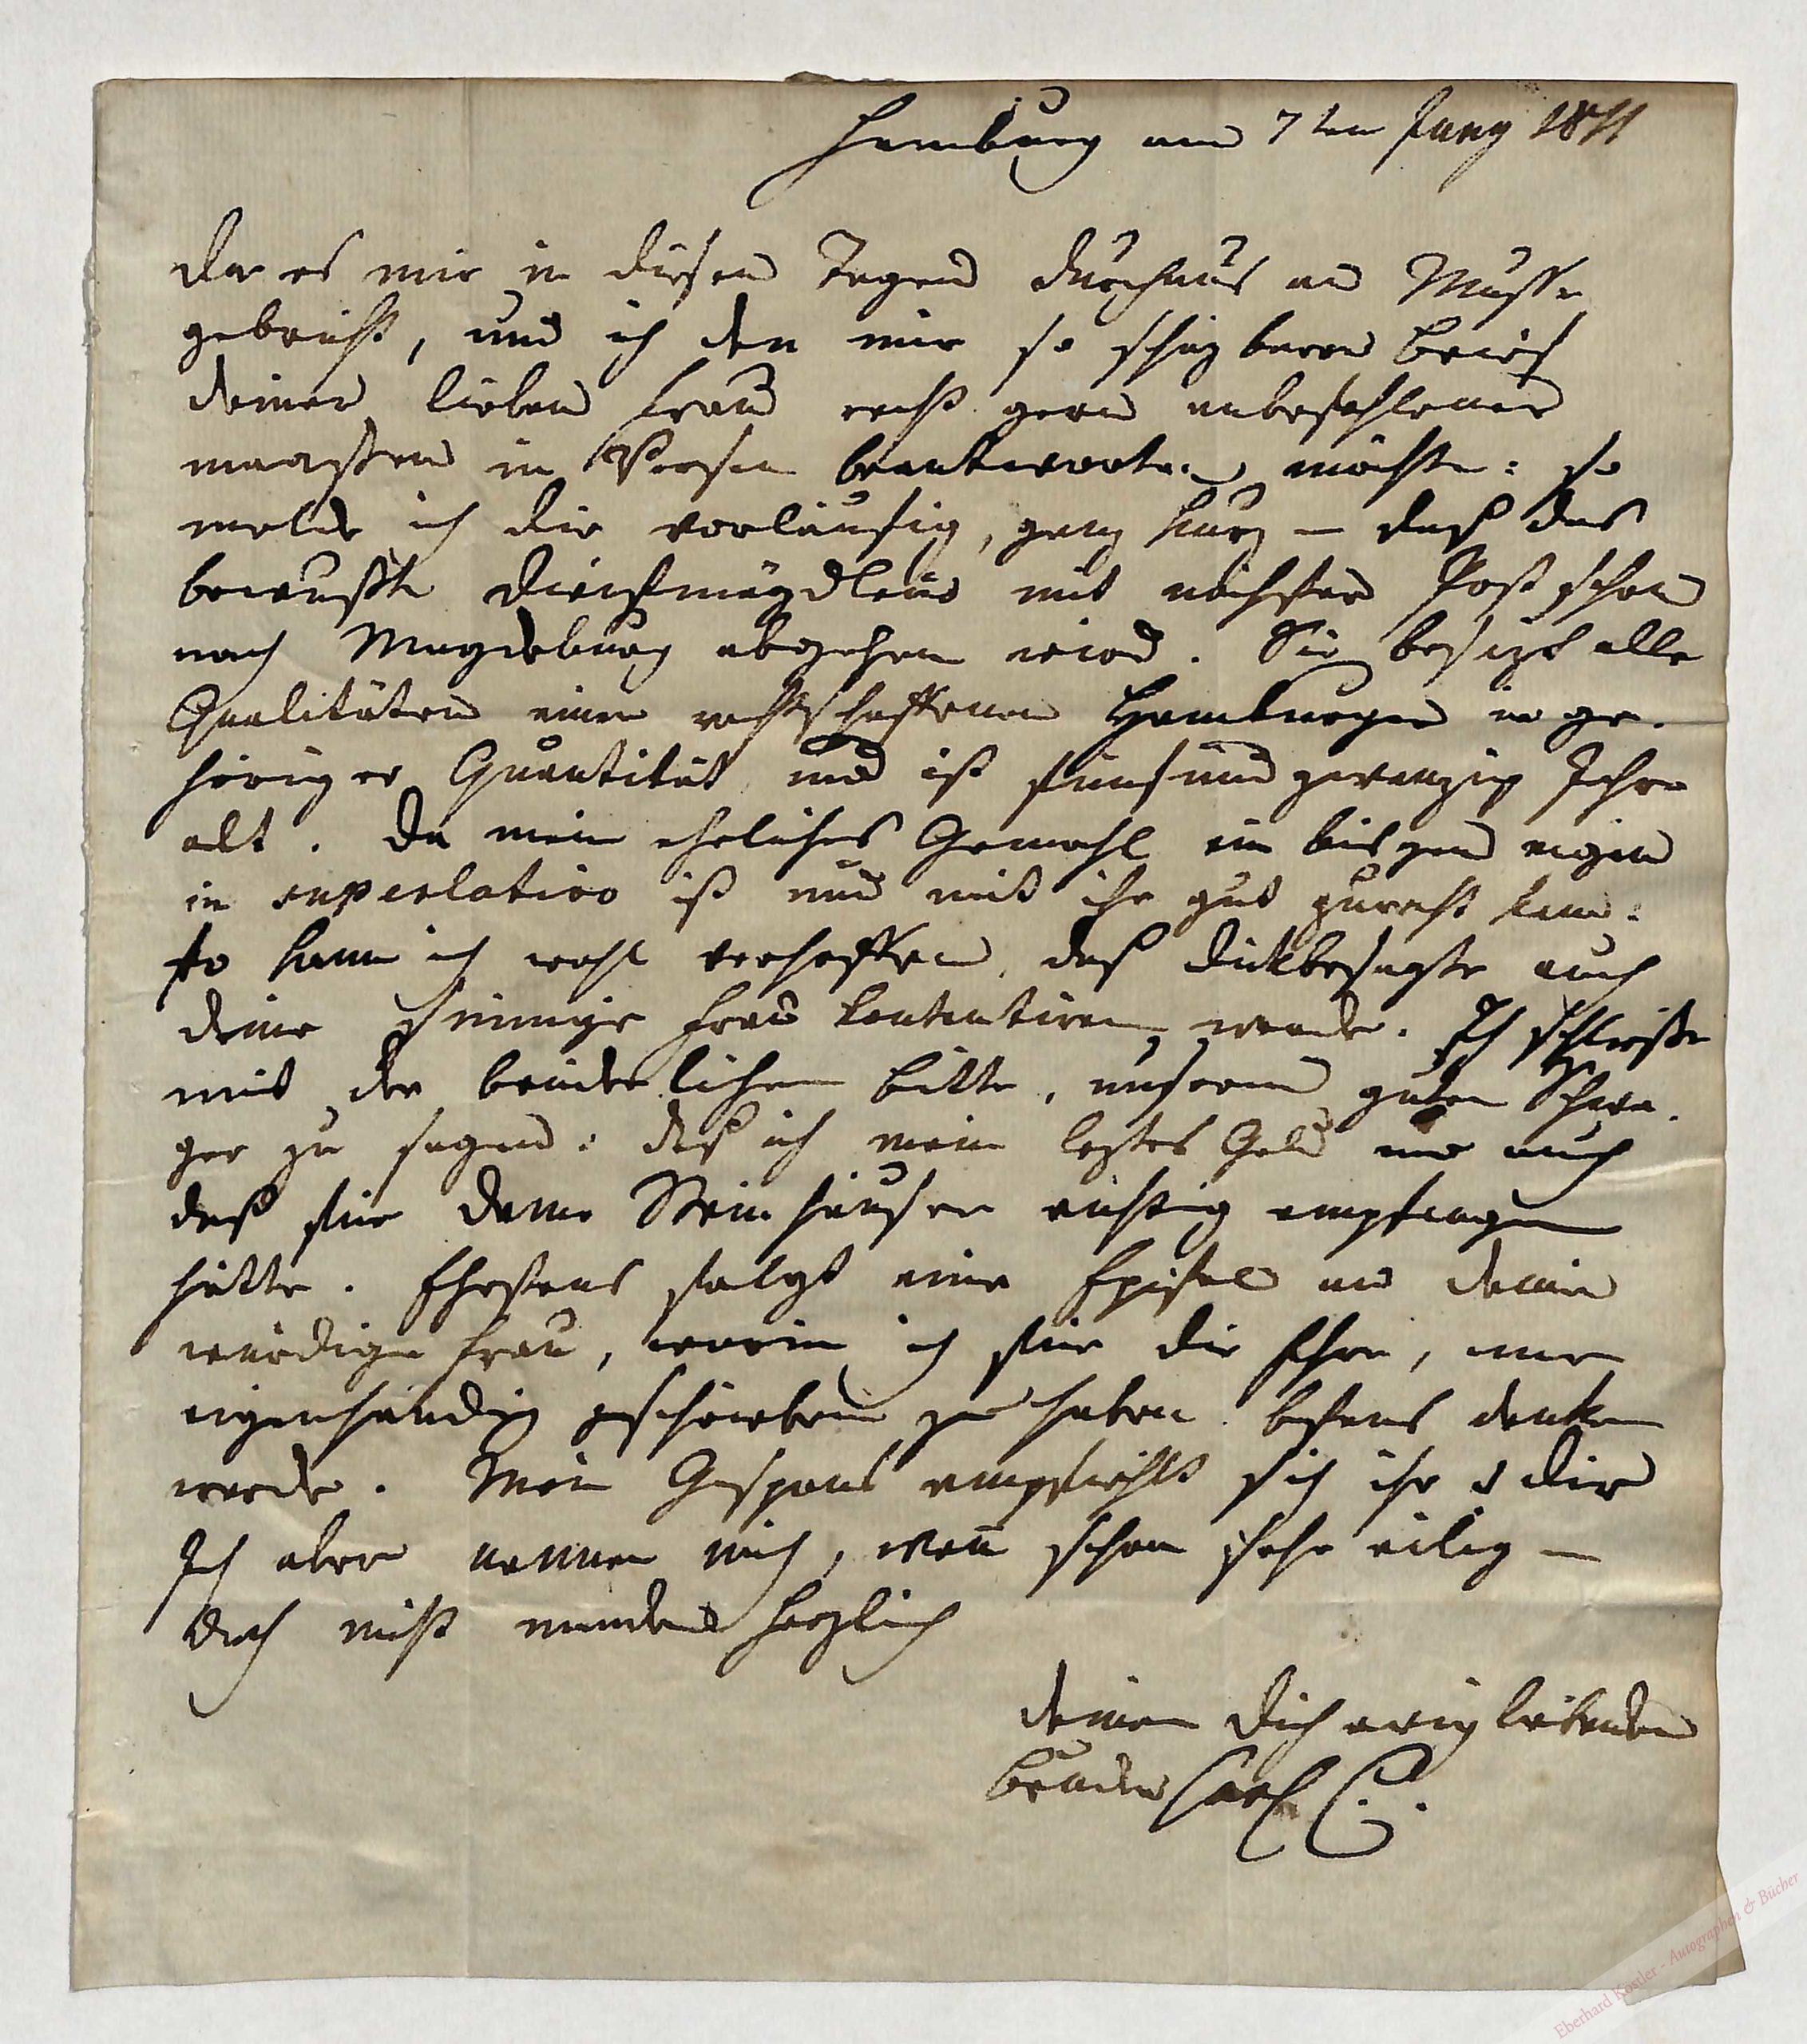 Hamburg am 7ten Juny 1811
Da es mir in diesen Tagen durchaus an Musse
gebricht, und ich den mir so schäzbaren Brief
deiner lieben Frau recht gern anbefohlener
maassen in Versen beantworten möchte: so
melde ich dir vorläufig, ganz kurz – daß das
bewußte Dienstmägdlein mit nächster Post schon
nach Magdeburg abgehen wird. Sie besizt alle
Qualitäten einer rechtschaffenen Hamburgerin in ge-
höriger Quantität und ist fünfundzwanzig Jahre
alt. Da mein eheliches Gemahl ein bisgen eigen
in superlativo ist und mit ihr gut zurecht kam:
so kann ich wohl verhoffen, daß dickbesagte auch
deine sinnige Frau kontentiren werde. Ich schließe
mit der brüderlichen Bitte, unserm guten Schwa-
ger zu sagen: daß ich mein leztes Geld und auch
daß für Steinhäuser richtig empfangen
hätte. Ehestens folgt eine Epistel an deine
würdige Frau, worin ich für die Ehre, mir
eigenhändig geschrieben zu haben bestens danken
werde. Mein Gespons empfiehlt sich ihr & dir
Ich aber nenne mich, wenn schon sehr eilig –
doch nicht minder herzlich
deinen dich ewig liebenden
Bruder Carl C.
Eberhard Köstler - Autographen & Bücher